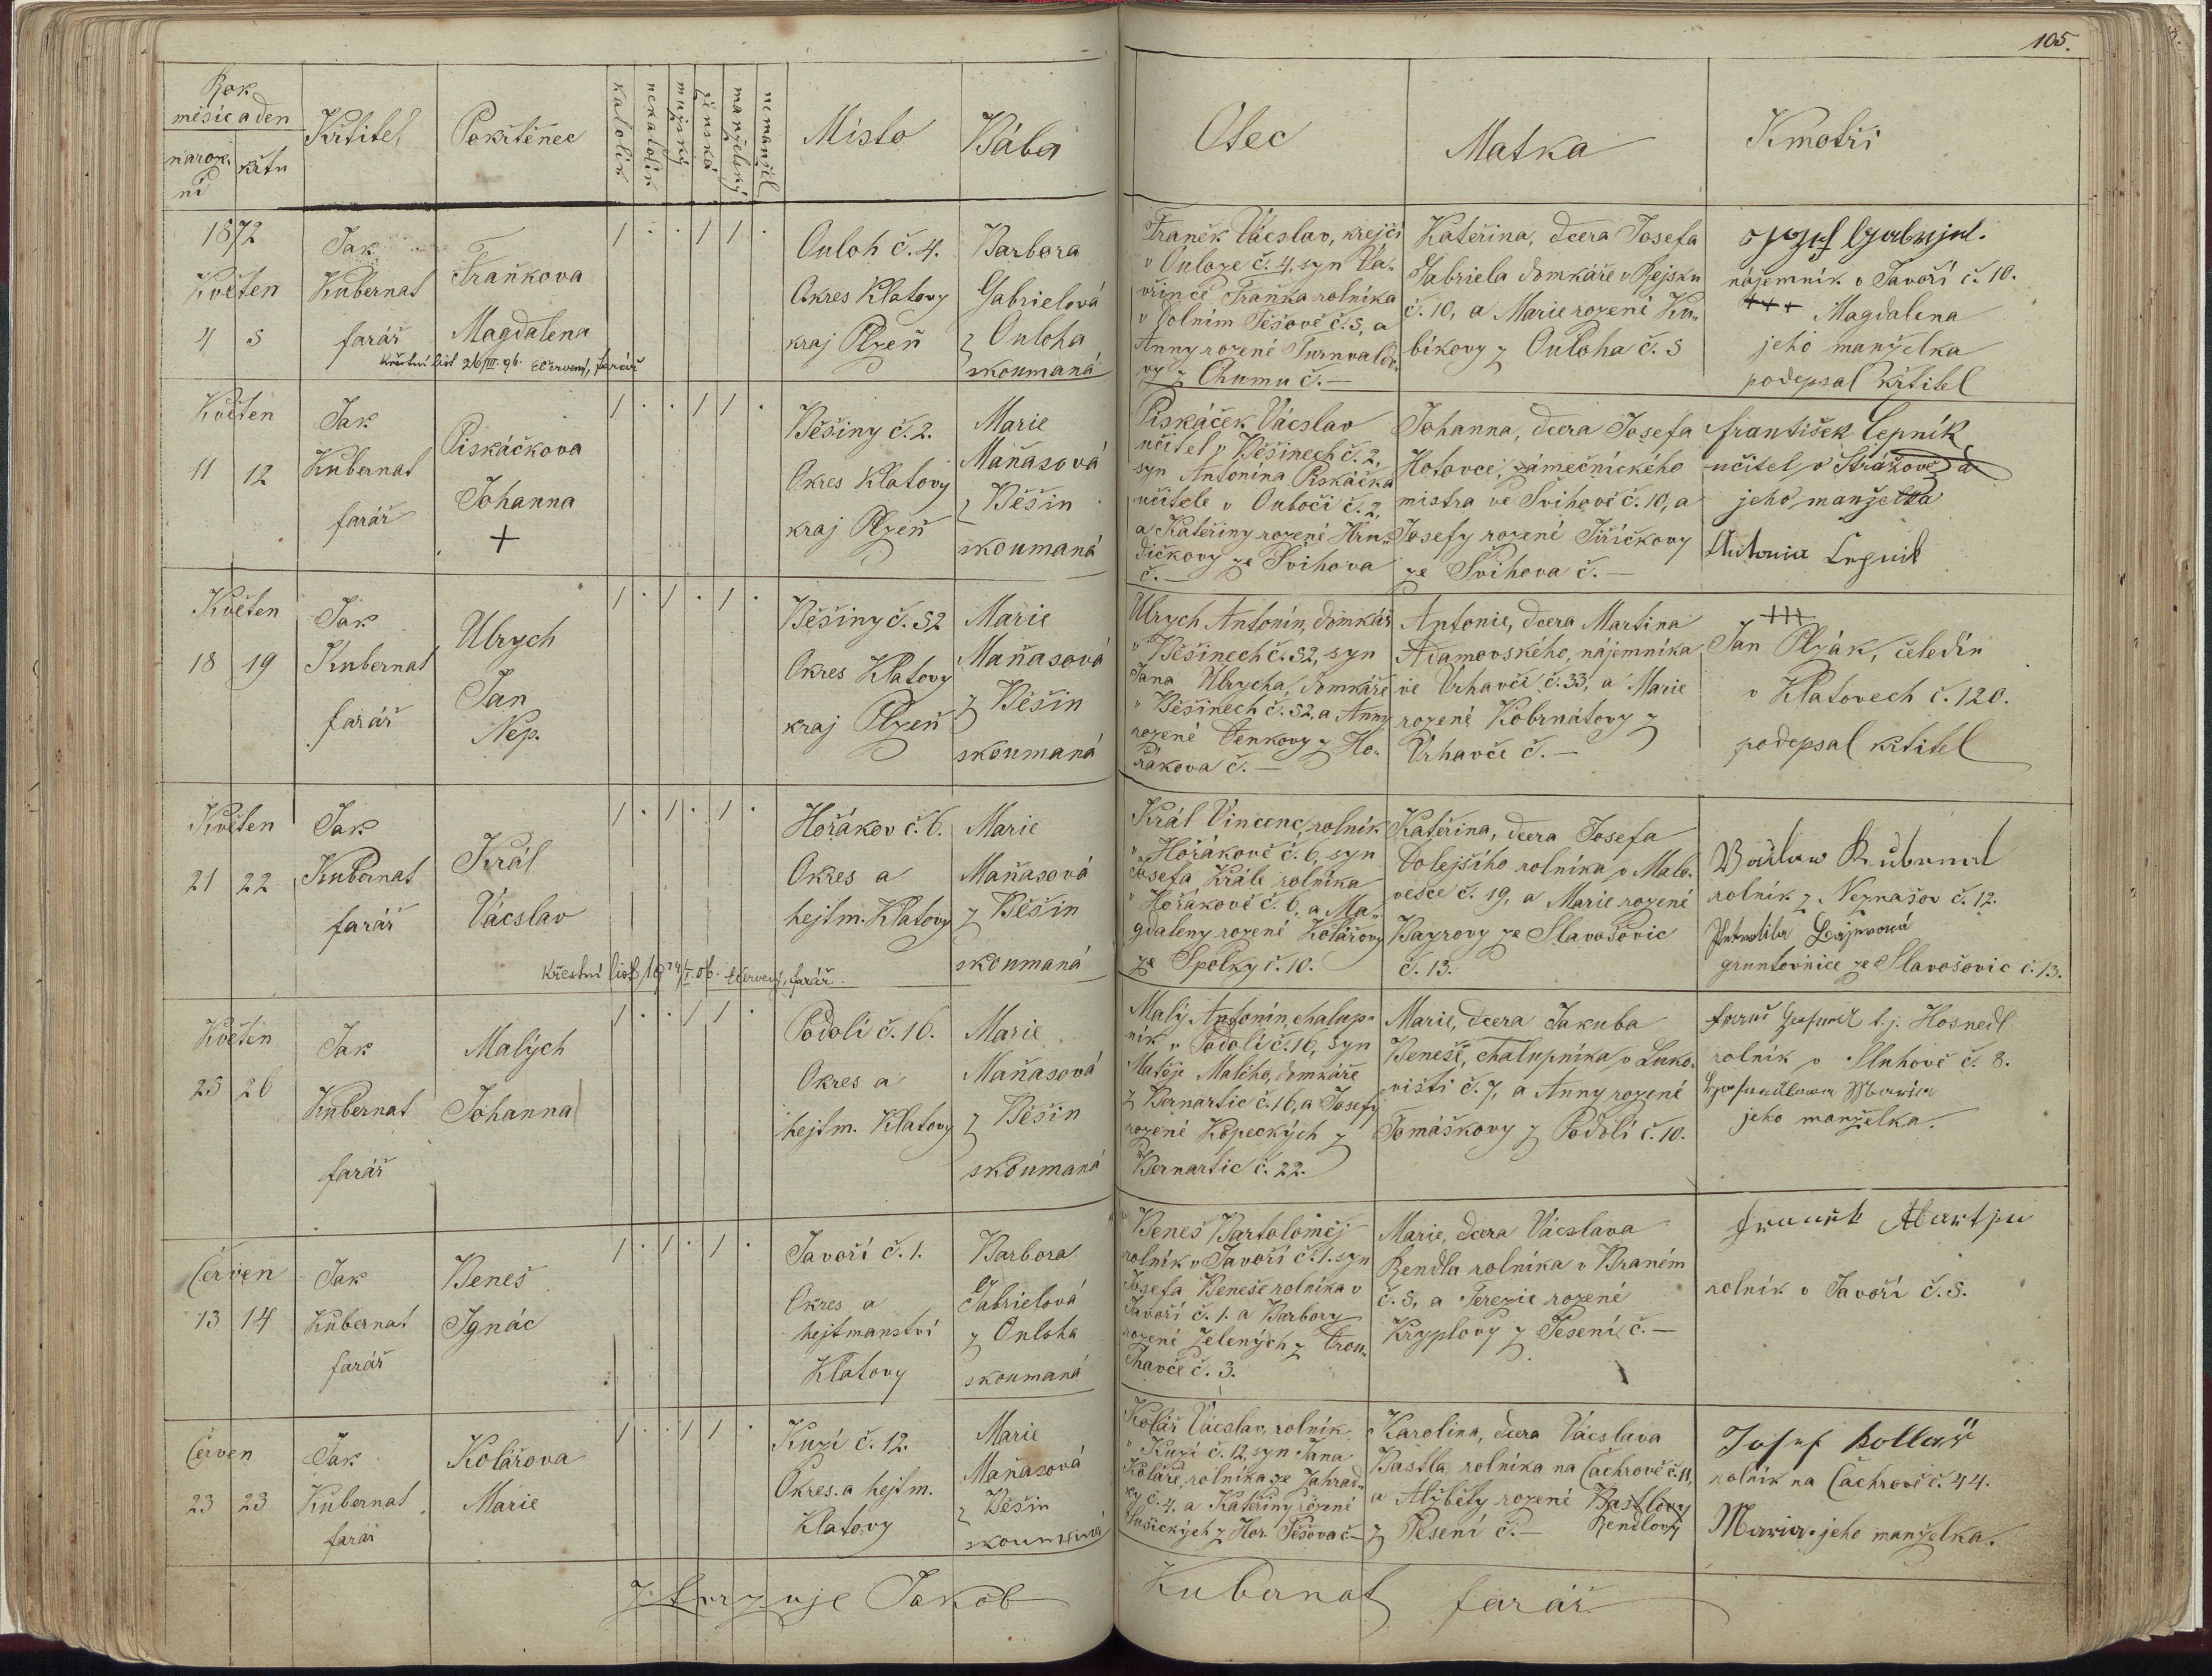 105.
Rok
měsíc a den
naroze
ní
křtu
Křtitel
Pokřtěnec
katolík
nekatolík
mužský
ženská
manželský
nemanžel
Místo
Bába
Otec
Matka
Kmotři
1872
Květen
4 5
Jak
Kubernat
farář
Fraňkova
Magdalena
Křestní list 26/III. 96. Červený, farář
1 . . 1 1 .
Ouloh č. 4.
Okres Klatovy
kraj Plzeň
Barbora
Gabrielová
z Ouloha
skoumaná
Franěk Vácslav, krejčí
v Ouloze č. 4, syn Va-
vřince Fraňka rolníka
v Dolním Těšově č. 5, a
Anny rozené Turnvaldo-
vy z Chumu č. —
Kateřina, dcera Josefa
Gabriela domkáře v Rejsku
č. 10, a Marie rozené Ku-
bíkovy z Ouloha č. 5
Josef Gabrijel.
nájemník v Javoří č. 10.
+++ Magdalena
jeho manželka
podepsal křtitel
Květen
11 12
Jak
Kubernat
farář
Piskáčkova
Johanna
+
1 . . 1 1 .
Běšiny č. 2.
Okres Klatovy
kraj Plzeň
Marie
Maňasová
z Běšin
skoumaná
Piskáček Vácslav
učitel v Běšinech č. 2,
syn Antonína Piskáčka
učitele v Oubočí č. 2,
a Kateřiny rozené Hru-
dičkovy ze Švihova
č. —
Johanna, dcera Josefa
Hotovce, zámečnického
mistra ve Švihově č. 10, a
Josefy rozené Jiříčkovy
ze Švihova č. —
František Lepník
učitel v Strážově a
jeho manželka
Antonia Lepnik
Květen
18 19
Jak
Kubernat
farář
Ulrych
Jan
Nep.
1 . 1 . 1 .
Běšiny č. 52
Okres Klatovy
kraj Plzeň
Marie
Maňasová
z Běšin
skoumaná
Ulrych Antonín, domkář
v Běšinech č. 52, syn
Jana Ulrycha, domkáře
v Běšinech č. 52, a Anny
rozené Denkovy z Ho-
řákova č. —
Antonie, dcera Martina
Adamovského, nájemníka
ve Vrhavči č. 33, a Marie
rozené Kobrnátovy z
Vrhavče č. —
+++
Jan Plzák, čeledín
v Klatovech č. 120.
podepsal křtitel
Květen
21 22
Jak
Kubernat
farář
Král
Vácslav
Křestní list 19 24/I. 06. Červený, farář.
1 . 1 . 1 .
Hořákov č. 6.
Okres a
hejtm. Klatovy
Marie
Maňasová
z Běšin
skoumaná
Král Vincenc, rolník
v Hořákově č. 6, syn
Josefa Krále rolníka
v Hořákově č. 6, a Ma-
gdaleny rozené Kolářovy
ze Spolky č. 10.
Kateřina, dcera Josefa
Dolejšího rolníka v Malo-
vesce č. 19, a Marie rozené
Bayrovy ze Slavošovic
č. 13.
Václaw Kubernat
rolník z Neznašov č. 12.
gruntovnice ze Slavošovic č. 13.
Květen
25 26
Jak
Kubernat
farář
Malých
Johanna
1 . . 1 1 .
Podolí č. 16.
Okres a
hejtm. Klatovy
Marie
Maňasová
z Běšin
skoumaná
Malý Antonín, chalup-
ník v Podolí č. 16, syn
Matěje Malého, domkáře
z Bernartic č. 16, a Josefy
rozené Kopeckých z
Bernartic č. 22.
Marie, dcera Jakuba
Beneše, chalupníka v Luko-
višti č. 7, a Anny rozené
Tomáškovy z Podolí č. 10.
t. j. Hosnedl
rolník v Sluhově č. 8.
jeho manželka.
Červen
13 14
Jak
Kubernat
farář
Beneš
Ignác
1 . 1 . 1 .
Javoří č. 1.
Okres a
hejtmanství
Klatovy
Barbora
Gabrielová
z Ouloha
skoumaná
Beneš Bartoloměj
rolník v Javoří č. 1. syn
Josefa Beneše rolníka v
Javoří č. 1. a Barbory
rozené Zelených z Drou-
havče č. 3.
Marie, dcera Vácslava
Rendla rolníka v Braném
č. 5, a Terezie rozené
Kryplovy z Jesení č. —
rolník v Javoří č. 5.
Červen
23 23
Jak
Kubernat
farář
Kolářova
Marie
1 . . 1 1 .
Kuzí č. 12.
Okres. a hejtm.
Klatovy
Marie
Maňasová
z Běšin
skoumaná
Kolář Vácslav, rolník
v Kuzí č. 12, syn Jana
Koláře, rolníka ze Zahrád-
ky č. 4. a Kateřiny rozené
Sušických z Hor. Těšova č —
Karolina, dcera Vácslava
Bastla rolníka na Čachrově č. 11,
a Alžběty rozené Bastlovy
z Jesení č. — Rendlovy
Josef Kollař
rolník na Čachrově č. 44.
Maria jeho manželka.
ztvrzuje Jakob Kubernat farář